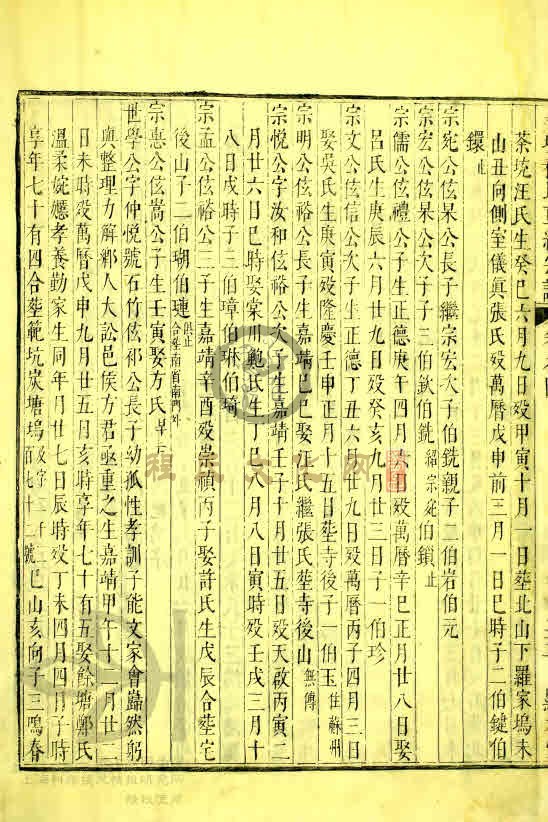 茶坑汪氏生癸巳六月九日歿甲寅十月一日葬北山下羅家塢未
山丑向側室儀眞張氏歿萬曆戊申前三月一日巳時子二伯鍵伯
鐶止
宗宛公伭杲公長子繼宗宏次子伯銑親子二伯岩伯元
宗宏公伭杲公次子子三伯欽伯銑紹宗宛伯鎖止
宗儒公伭禮公子生正德庚午四月六日歿萬曆辛巳正月廿八日娶
呂氏生庚辰六月廿九日歿癸亥九月廿三日子一伯珍
宗文公伭信公次子生正德丁丑六月廿九日歿萬曆丙子四月三日
娶吳氏生庚寅歿隆慶壬申正月十五日葬寺後子一伯玉住蘇州
宗明公伭裕公長子生嘉靖己巳娶汪氏繼張氏葬寺後山無傳
宗悅公字汝和伭裕公次子生嘉靖壬子十月廿五日歿天啟丙寅二
月廿六日巳時娶棠川鮑氏生丁巳八月八日寅時歿壬戌三月十
八日戌時子三伯璋伯琳伯琦
宗孟公伭裕公三子生嘉靖辛酉歿崇禎丙子娶許氏生戊辰合葬宅
後山子二伯瑚伯璉俱止合葬南首南門外
宗惠公伭嵩公子生壬寅娶方氏
世學公字仲悅號石竹伭祁公長子幼孤性孝訓子能文家會巋然躬
與整理力解鄉人大訟邑侯方君亟重之生嘉靖甲午十一月廿二
日未時歿萬曆戊申九月廿五日亥時享年七十有五娶餘塘鄭氏
溫柔婉嫕孝養勤家生同年月廿七日辰時歿丁未四月四日子時
享年七十有四合葬範坑炭塘塢巳山亥向子三鳴春
程氏文化网